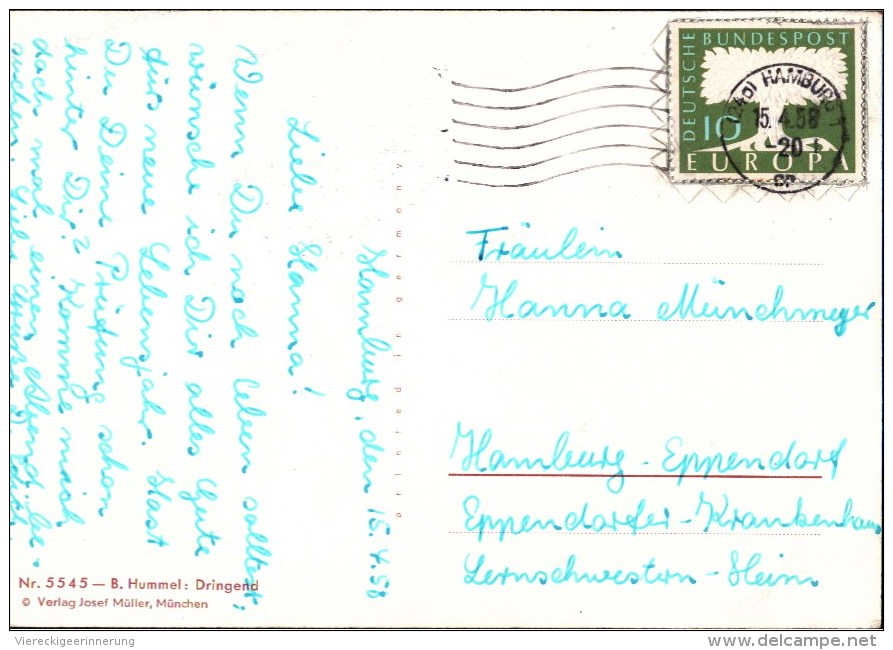 DEUTSCHE BUNDESPOST
10
EUROPA
(24a) HAMBURG 1
15.4.58
-20
Hamburg, den 15.4.58
Liebe Hanna!
Wenn Du noch leben solltest,
wünsche ich Dir alles Gute
fürs neue Lebensjahr. Hast
Du Deine Prüfung schon
hinter Dir? Komme mich
doch mal einen Abend be-
suchen. Viele
printed in germany
Fräulein
Hanna Münchmeyer
Hamburg-Eppendorf
Eppendorfer-Krankenhaus
Lernschwestern-Heim
Nr. 5545 — B. Hummel: Dringend
© Verlag Josef Müller, München
Viereckigeerinnerung
delcampe.net